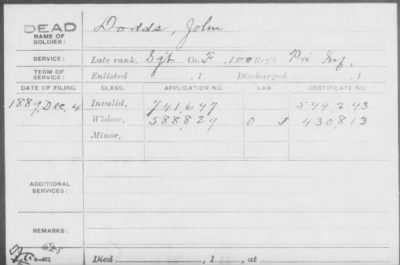 DEAD
NAME OF SOLDIER: Dodds, John
SERVICE: Late rank, Sgt Co. F, 100 Reg't Pa Inf.
TERM OF SERVICE: Enlisted , 1 Discharged , 1
DATE OF FILING. CLASS. APPLICATION NO. LAW. CERTIFICATE NO.
Invalid, 741,647 544,243
1889, Dec. 4 Widow, 588,829 430,813
Minor,
ADDITIONAL SERVICES:
REMARKS:
Died , 1 , at